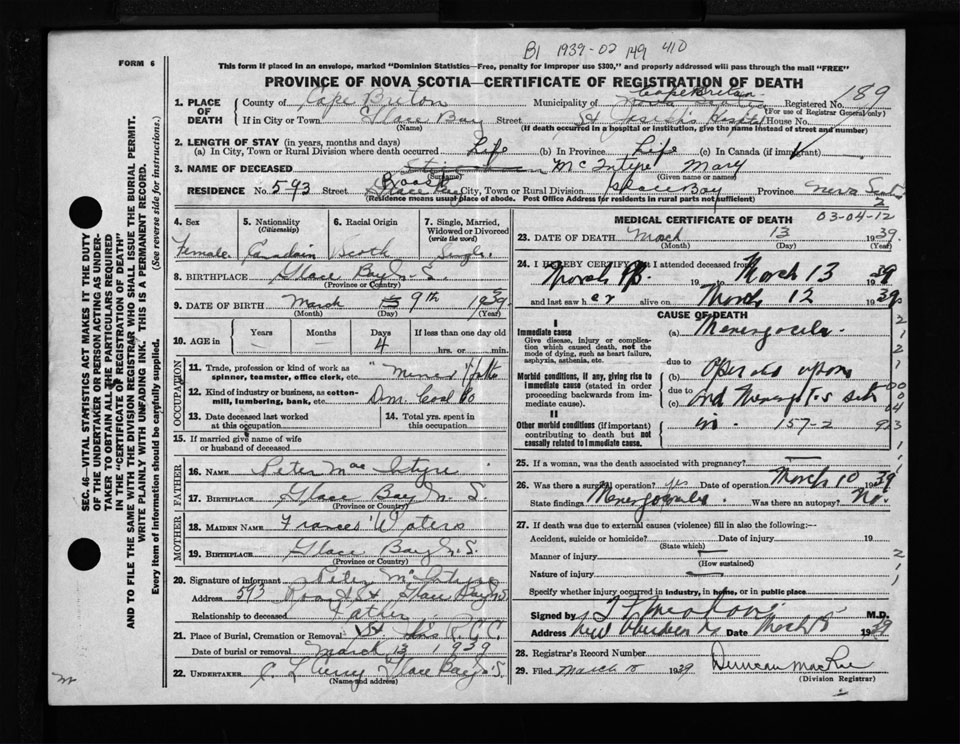 B1 1939-02 149 410
FORM 6
This form if placed in an envelope, marked "Dominion Statistics—Free, penalty for improper use $300," and properly addressed will pass through the mail "FREE"
PROVINCE OF NOVA SCOTIA—CERTIFICATE OF REGISTRATION OF DEATH
SEC. 46—VITAL STATISTICS ACT MAKES IT THE DUTY
OF THE UNDERTAKER OR PERSON ACTING AS UNDER-
TAKER TO OBTAIN ALL THE PARTICULARS REQUIRED
IN THE "CERTIFICATE OF REGISTRATION OF DEATH"
AND TO FILE THE SAME WITH THE DIVISION REGISTRAR WHO SHALL ISSUE THE BURIAL PERMIT.
WRITE PLAINLY WITH UNFADING INK. THIS IS A PERMANENT RECORD.
Every item of Information should be carefully supplied. (See reverse side for instructions.)
1. PLACE OF DEATH
County of Cape Breton Municipality of Cape Breton Nova Scotia Registered No. 189
(For use of Registrar General only)
If in City or Town Glace Bay Street St Joseph's Hospital House No.
(Name) (If death occurred in a hospital or institution, give the name instead of street and number)
2. LENGTH OF STAY (in years, months and days)
(a) In City, Town or Rural Division where death occurred Life (b) In Province Life (c) In Canada (if immigrant)
3. NAME OF DECEASED McIntyre Mary
(Surname) (Given name or names)
RESIDENCE No. 593 Street Roost City, Town or Rural Division Glace Bay Province Nova Scotia
(Residence means usual place of abode. Post Office Address for residents in rural parts not sufficient) 2
4. Sex
5. Nationality (Citizenship)
6. Racial Origin
7. Single, Married, Widowed or Divorced (write the word)
Female Canadain Scoth Single
8. BIRTHPLACE Glace Bay N.S.
(Province or Country)
9. DATE OF BIRTH March 9th 1939
(Month) (Day) (Year)
10. AGE in Years Months Days If less than one day old
4 hrs. or min.
OCCUPATION
11. Trade, profession or kind of work as
spinner, teamster, office clerk, etc. Miner
12. Kind of industry or business, as cotton-
mill, lumbering, bank, etc. Dom. Coal Co
13. Date deceased last worked
at this occupation
14. Total yrs. spent in
this occupation
15. If married give name of wife
or husband of deceased
FATHER
16. NAME Peter Mac Intyre
17. BIRTHPLACE Glace Bay N.S.
(Province or Country)
MOTHER
18. MAIDEN NAME Frances Waters
19. BIRTHPLACE Glace Bay N.S.
(Province or Country)
20. Signature of informant Peter McIntyre
Address 593 Roost St Glace Bay N.S.
Relationship to deceased Father
21. Place of Burial, Cremation or Removal R.G.C.
Date of burial or removal March 13 1939
22. UNDERTAKER Glace Bay N.S.
(Name and address)
MEDICAL CERTIFICATE OF DEATH
03-04-12
23. DATE OF DEATH March 13 1939
(Month) (Day) (Year)
24. I HEREBY CERTIFY that I attended deceased from
March 19 to March 13 1939
and last saw her alive on March 12 1939
CAUSE OF DEATH
I
Immediate cause
Give disease, injury or complica-
tion which caused death, not the
mode of dying, such as heart failure,
asphyxia, asthenia, etc.
(a) Meningocele
due to
Morbid conditions, if any, giving rise to
immediate cause (stated in order
proceeding backwards from
immediate cause).
(b) Operated upon
due to
(c) and Meningitis set
II
Other morbid conditions (if important)
contributing to death but not
causally related to immediate cause.
in. 157-2
25. If a woman, was the death associated with pregnancy?
26. Was there a surgical operation? yes Date of operation March 10 1939
State findings Meningocele Was there an autopsy? No.
27. If death was due to external causes (violence) fill in also the following:—
Accident, suicide or homicide? Date of injury 19
(State which)
Manner of injury
(How sustained)
Nature of injury
Specify whether injury occurred in Industry, in home, or in public place
Signed by M.D.
Address New Aberdeen Date March 15 1939
28. Registrar's Record Number
29. Filed March 1939 Duncan MacRae
(Division Registrar)